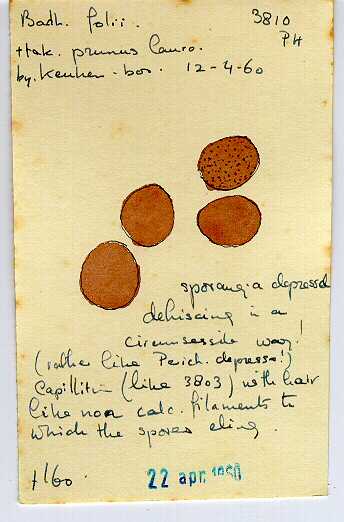 Badh. folii.
3810
PH
+ tak. prunus lauro.
by. Keuken-bos. 12-4-60
sporangia depressed
dehiscing in a
circumscissile way!
(rather like Perich. depressa!)
Capillitium (like 3803) with hair
like non calc. filaments to
which the spores cling.
±160.
22 apr. 1960